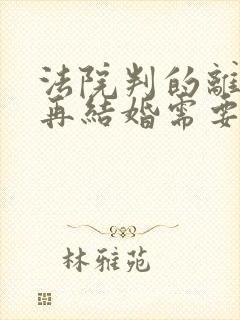 法院判的離
再結婚需要
林雅苑